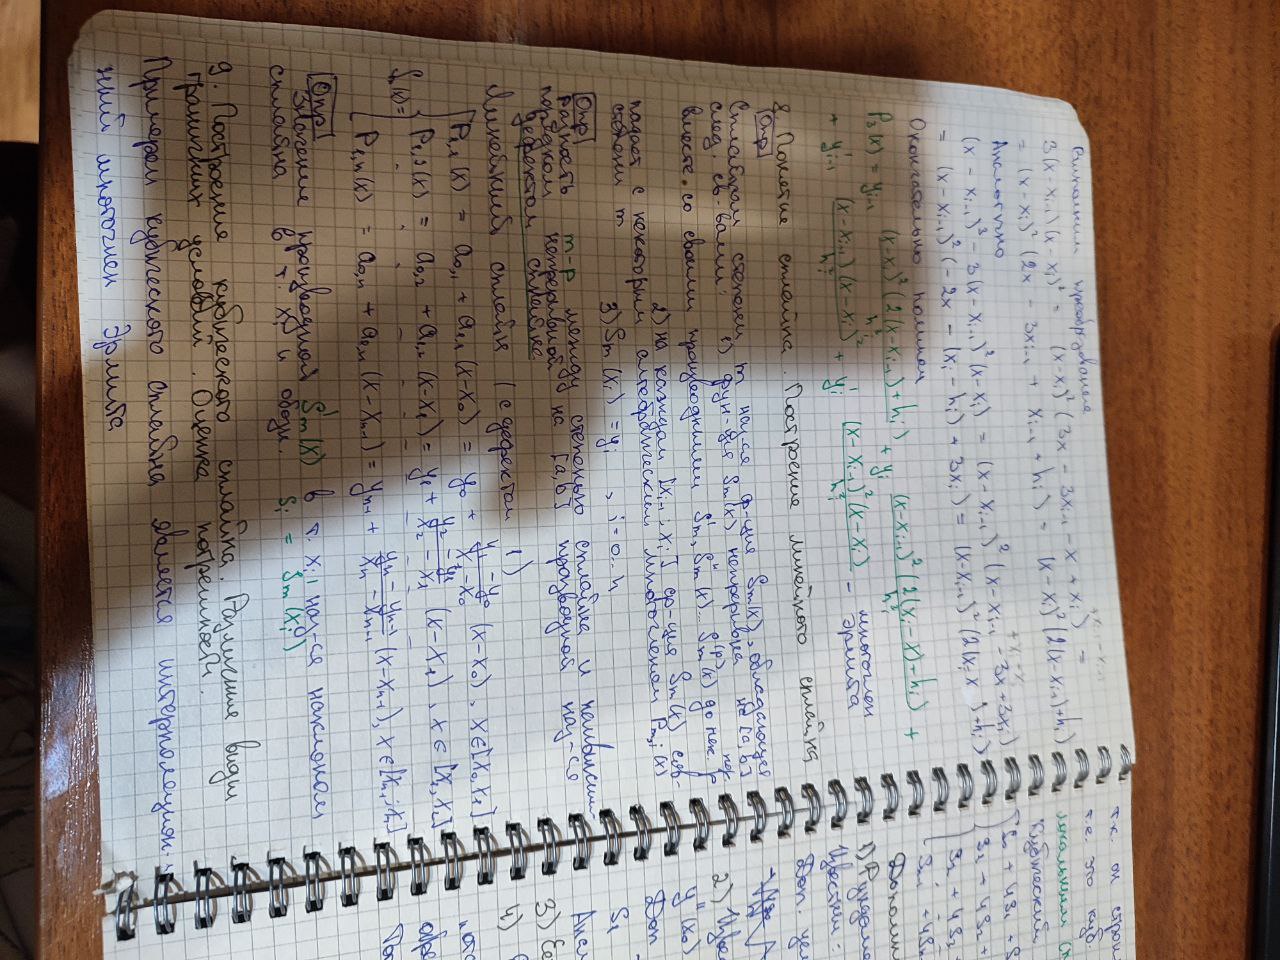 Выполним преобразование
+x_{i-1} - x_{i-1}
3(x-x_{i-1})(x-x_i)² = (x-x_i)²(3x - 3x_{i-1} - x + x_i) =
= (x-x_i)²(2x - 3x_{i-1} + x_{i-1} + h_i) = (x-x_i)²(2(x-x_{i-1})+h_i)
Аналогично
(x - x_{i-1})³ - 3(x-x_{i-1})²(x-x_i) = (x-x_{i-1})²(x-x_{i-1} - 3x+3x_i)
= (x-x_{i-1})²(-2x - (x_i - h_i) + 3x_i) = (x-x_{i-1})²(2(x_i-x)+h_i)
Окончательно
P₃(x) = y_{i-1} (x-x_i)²(2(x-x_{i-1})+h_i)/h_i³ + y_i (x-x_{i-1})²(2(x_i-x)+h_i)/h_i³ +
+ y'_{i-1} (x-x_{i-1})(x-x_i)²/h_i² + y'_i (x-x_{i-1})²(x-x_i)/h_i² - многочлен Эрмита
8. Понятие сплайна. Построение линейного сплайна
Опр
Сплайном степени m наз-ся ф-ция S_m(x), обладающая
след. св-вами: 1) фун-ция S_m(x) непрерывна на [a,b]
вместе со своими производными S'_m, S''_m(x)... S_m^{(p)}(x) до нек. пор. p
2) на каждом [x_{i-1}; x_i] ф-ция S_m(x) сов-
падает с некоторым алгебраическим многочленом P_{m,i}(x)
степени m
3) S_m(x_i) = y_i , i=0..n
Опр
Разность m-p между степенью сплайна и наивысшим
порядком непрерывной на [a,b] производной наз-ся
дефектом сплайна
Линейный сплайн (с дефектом 1)
P_{1,1}(x) = a_{0,1} + a_{1,1}(x-x_0) = y_0 + (y_1-y_0)/(x_1-x_0) (x-x_0), x∈[x_0,x_1]
P_{1,2}(x) = a_{0,2} + a_{1,2}(x-x_1) = y_1 + (y_2-y_1)/(x_2-x_1) (x-x_1), x∈[x_1,x_2]
P_{1,n}(x) = a_{0,n} + a_{0,n}(x-x_{n-1}) = y_{n-1} + (y_n-y_{n-1})/(x_n-x_{n-1}) (x-x_{n-1}), x∈[x_{n-1};x_n]
Опр
Значение производной S'_m(x) в т. x_i наз-ся наклоном
сплайна в т. x_i и обозн. S_i = S'_m(x_i)
9. Построение кубического сплайна. Различные виды
граничных условий. Оценка погрешности.
Примером кубического сплайна является интерполяцион-
ный многочлен Эрмита
т.к. он строи
т.е. это куб.
Кубический
Дополни
1) Фундаме
Известни
Доп. усл
2) Изве
y''(x_0)
Доп
S_1
Анал
3) Ес
4)